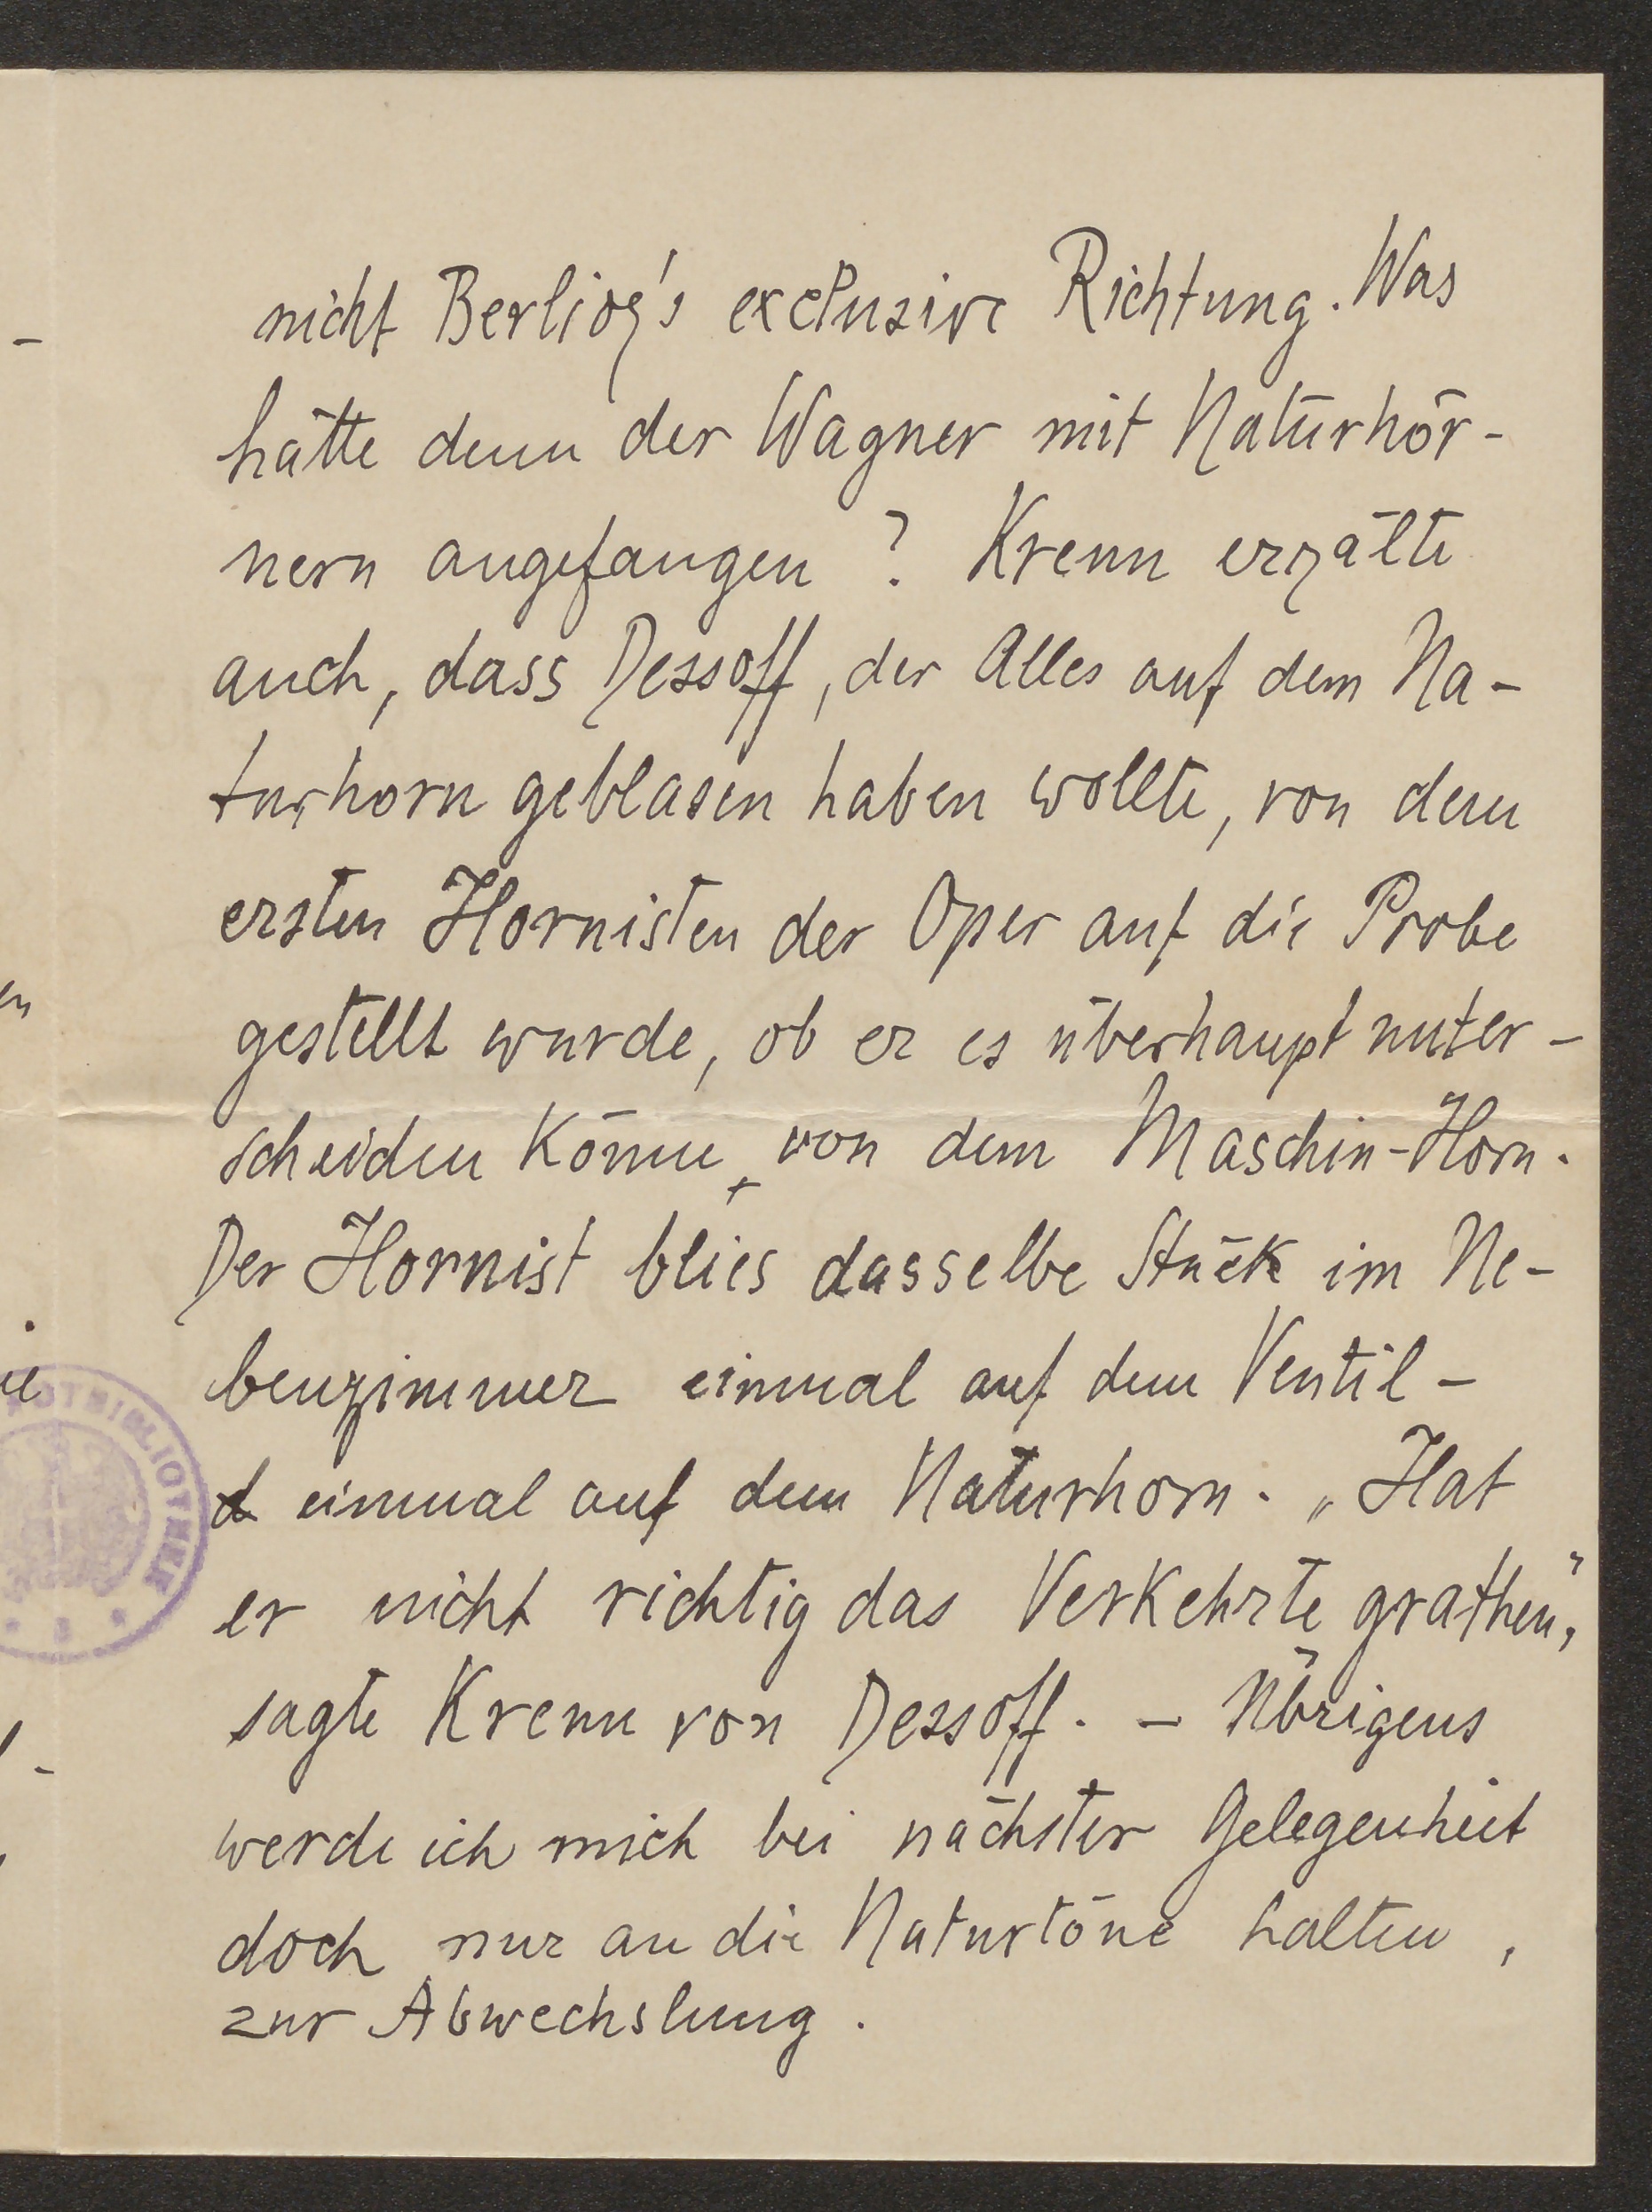 nicht Berlioz's exclusive Richtung. Was
hätte denn der Wagner mit Naturhör-
nern angefangen? Krenn erzälte
auch, dass Dessoff, der Alles auf dem Na-
turhorn geblasen haben wollte, von dem
ersten Hornisten der Oper auf die Probe
gestellt wurde, ob er es überhaupt unter-
scheiden könne, von dem Maschin-Horn.
Der Hornist blies dasselbe Stück im Ne-
benzimmer einmal auf dem Ventil-
d einmal auf dem Naturhorn. „Hat
er nicht richtig das Verkehrte grathen",
sagte Krenn von Dessoff. – Übrigens
werde ich mich bei nächster Gelegenheit
doch nur an die Naturtöne halten,
zur Abwechslung.